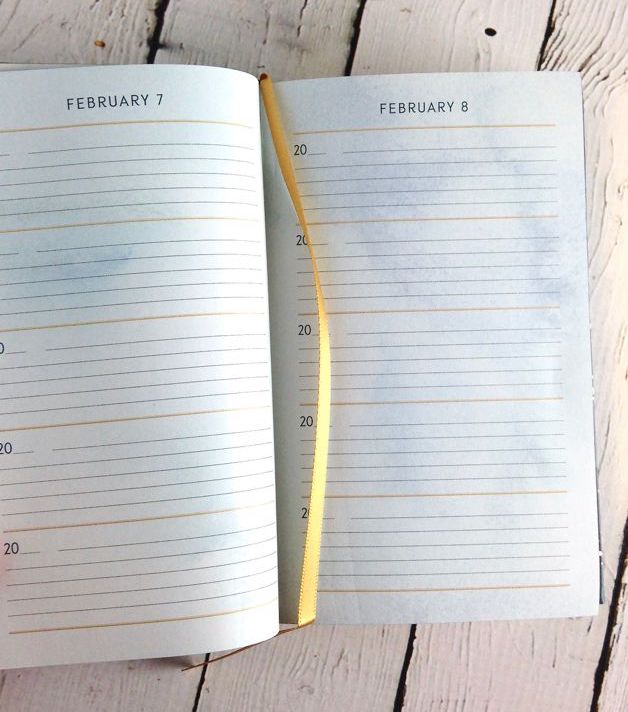 FEBRUARY 7
0
20
20
FEBRUARY 8
20
20
20
20
20